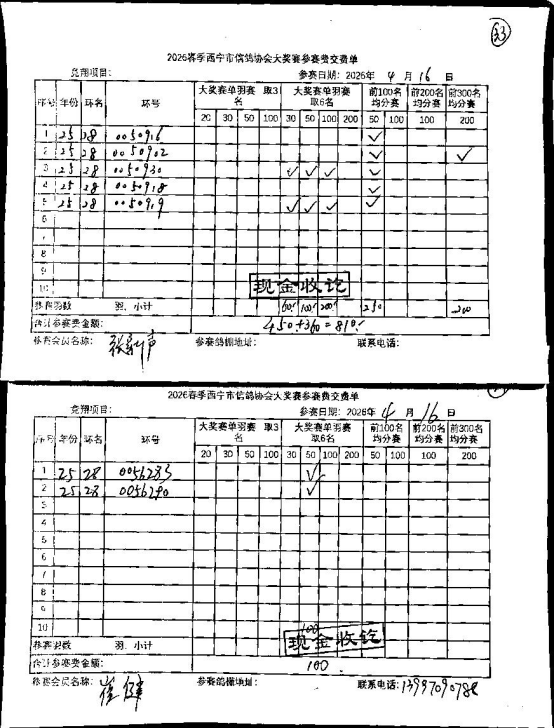 23
2026春季西宁市信鸽协会大奖赛参赛费交费单
竞翔项目: 参赛日期: 2026年 4 月 16 日
序号 年份 环名 环号 大奖赛单羽赛 取3名 大奖赛单羽赛 取6名 前100名均分赛 前200名均分赛 前300名均分赛
20 30 50 100 30 50 100 200 50 100 100 200
1 25 28 0050916 ✓
2 25 28 0050902 ✓ ✓
3 25 28 0050930 ✓ ✓ ✓ ✓
4 25 28 0050918 ✓
5 25 28 0050919 ✓ ✓ ✓ ✓
6
7
8
9
10
现金收讫
参赛羽数 羽、小计 60 100 200 250 200
合计参赛费金额: 450+360=810
参赛会员名称: 参赛鸽棚地址: 联系电话:
2026春季西宁市信鸽协会大奖赛参赛费交费单
竞翔项目: 参赛日期: 2026年 4 月 16 日
序号 年份 环名 环号 大奖赛单羽赛 取3名 大奖赛单羽赛 取6名 前100名均分赛 前200名均分赛 前300名均分赛
20 30 50 100 30 50 100 200 50 100 100 200
1 25 28 0056283 ✓
2 25 28 0056290 ✓
3
4
5
6
7
8
9
10
100
现金收讫
参赛羽数 羽、小计
合计参赛费金额: 100
参赛会员名称: 崔健 参赛鸽棚地址: 联系电话: